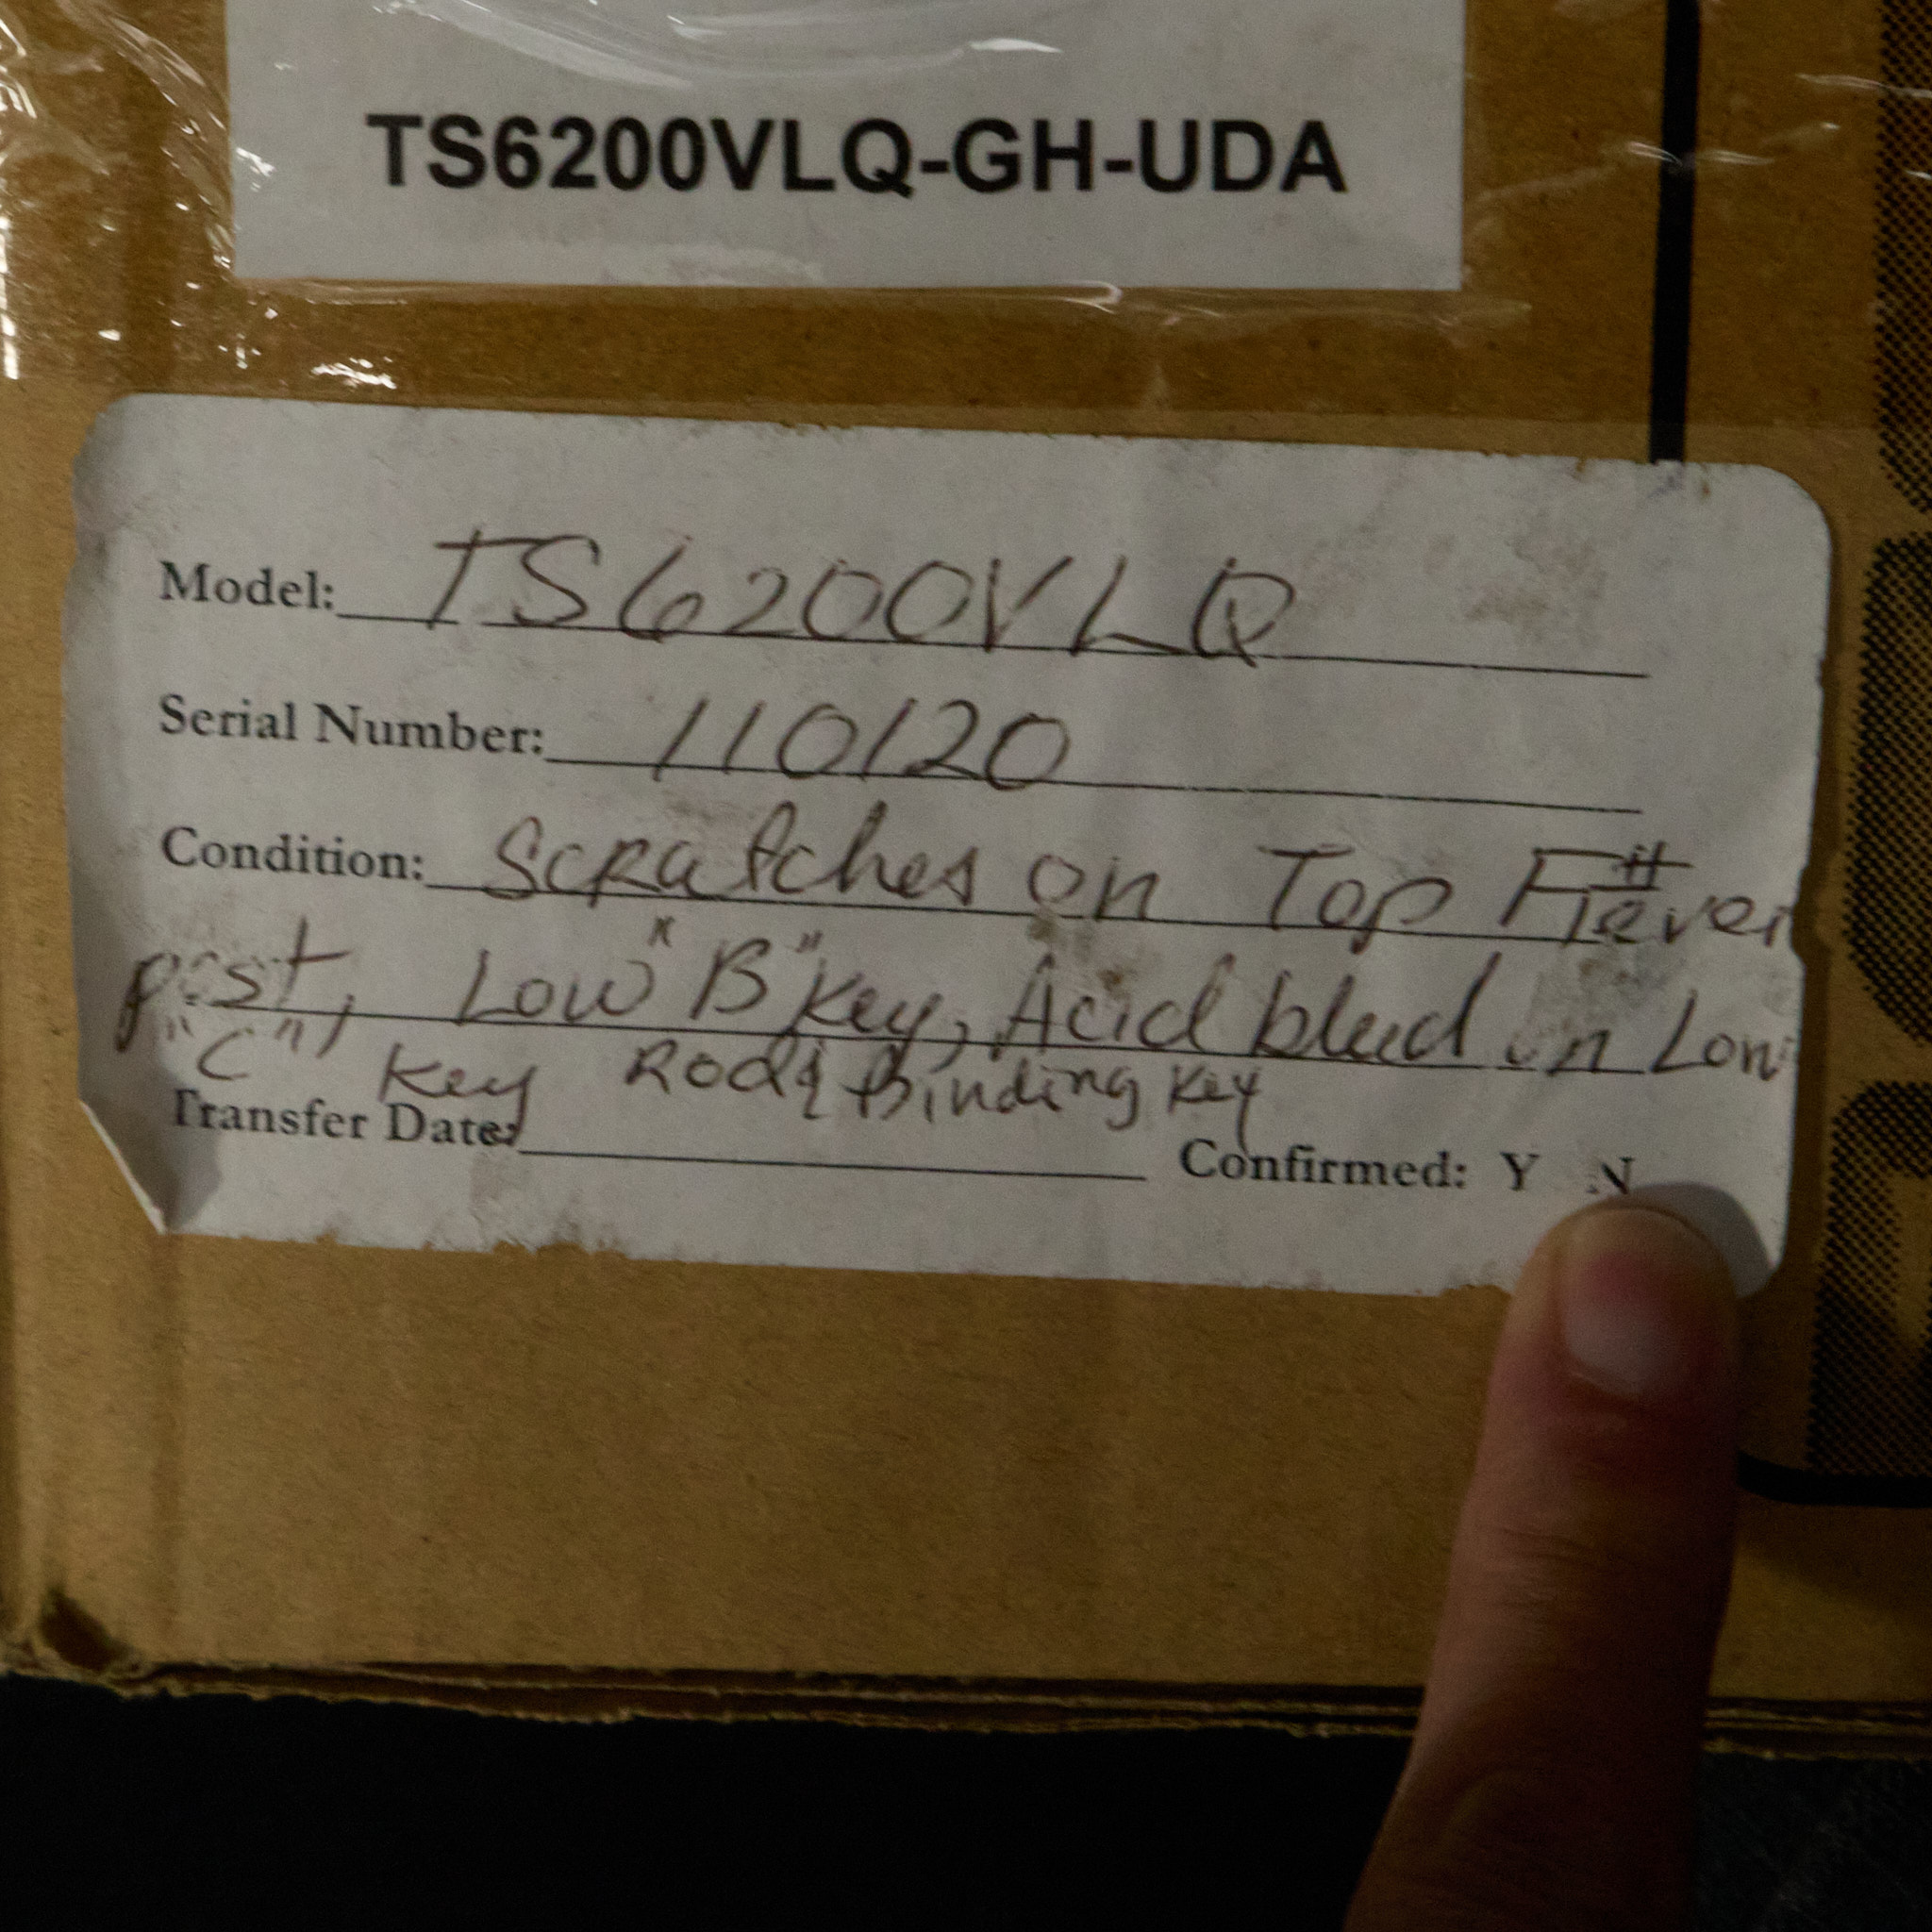 TS6200VLQ-GH-UDA
Model: TS6200VLQ
Serial Number: 110120
Condition: Scratches on Top F# lever
post, Low "B" key, Acid bleed on Low
"C", key Rod & Binding key
Transfer Date: Confirmed: Y N